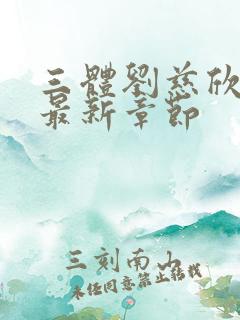 三體劉慈欣
最新章節
三刻南山
未經同意禁止轉載